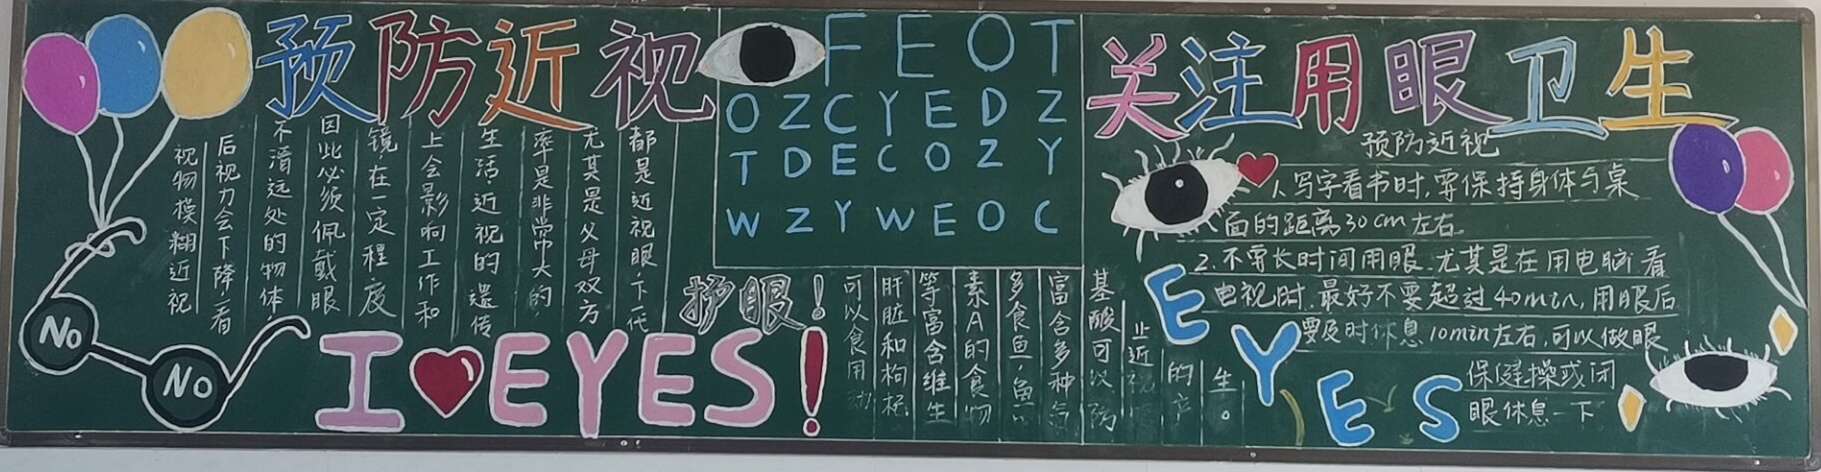 预防近视
视物模糊近视
后视力会下降,看
不清远处的物体
因此必须佩戴眼
镜,在一定程度
上会影响工作和
生活,近视的遗传
率是非常大的
尤其是父母双方
都是近视眼,下一代
NO
NO
I EYES!
护眼!
FEOT
OZCYEDZ
TDECOZY
WZYWEOC
可以食用动
肝脏和枸杞
等富含维生
素A的食物
多食鱼,鱼
富含多种氨
基酸可以防
止近视
的产
生。
关注用眼卫生
预防近视
1.写字看书时,要保持身体与桌
面的距离30cm左右.
2.不要长时间用眼.尤其是在用电脑.看
电视时.最好不要超过40min,用眼后
要及时休息10min左右,可以做眼
保健操或闭
眼休息一下
EYES